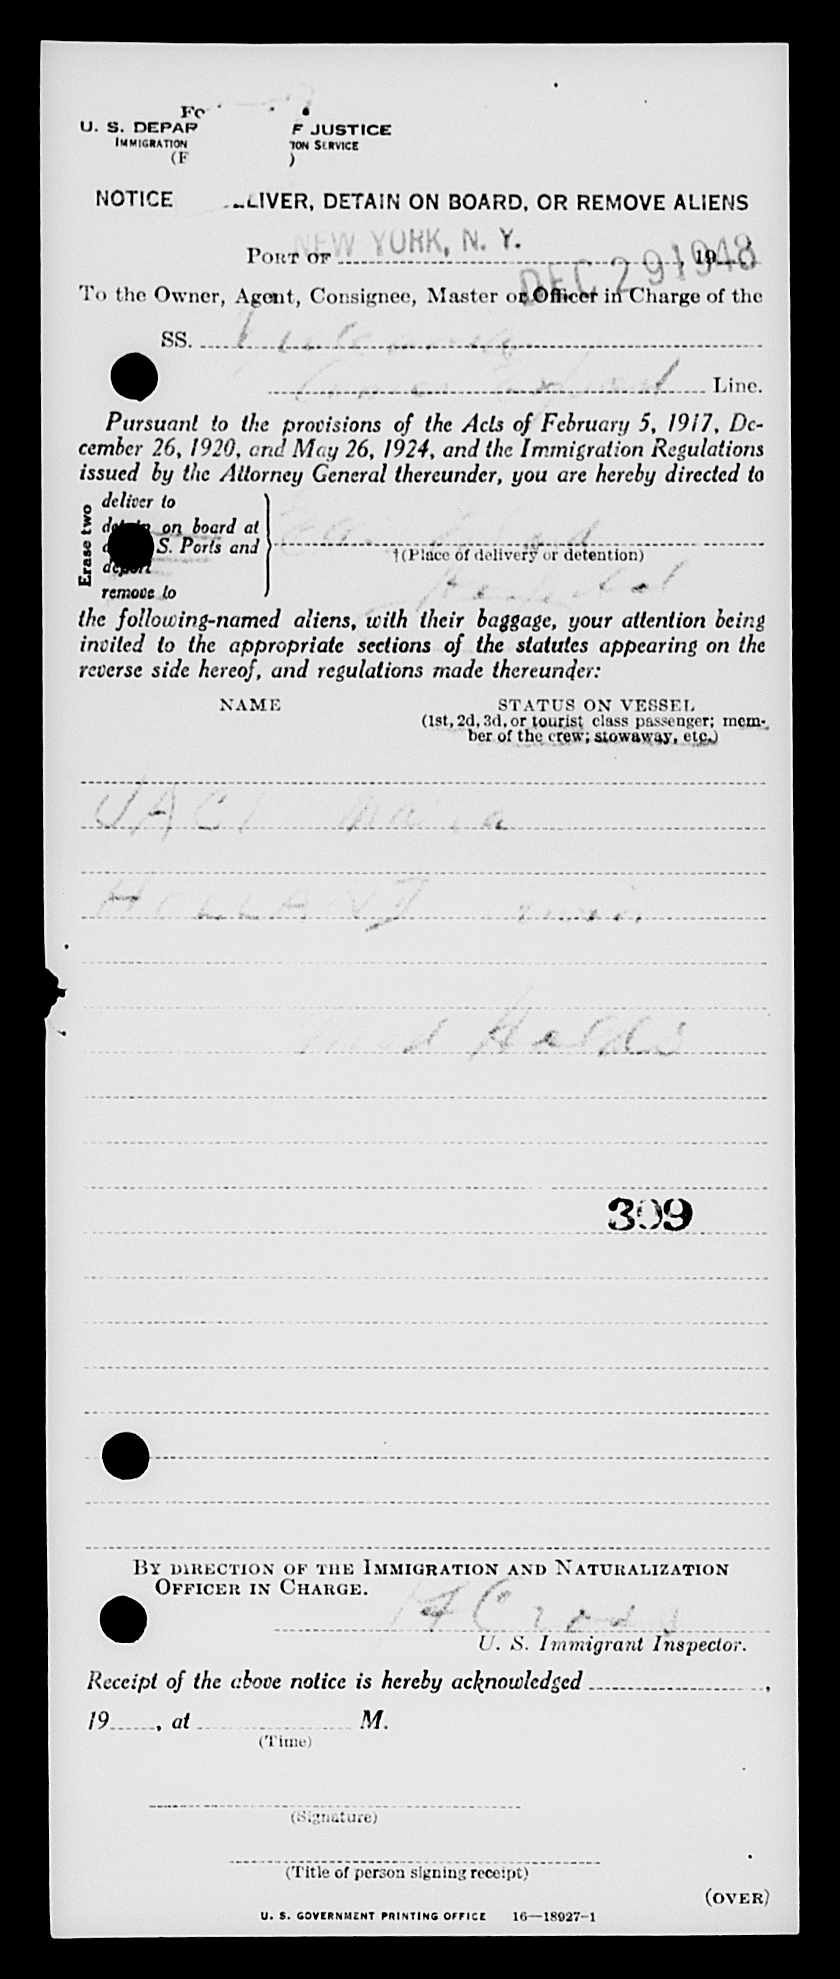 U. S. DEPAR F JUSTICE
IMMIGRATION ION SERVICE
(F )
NOTICE LIVER, DETAIN ON BOARD, OR REMOVE ALIENS
PORT OF NEW YORK, N. Y. DEC 29 1948 19
To the Owner, Agent, Consignee, Master or Officer in Charge of the
SS.
Export Line.
Pursuant to the provisions of the Acts of February 5, 1917, De-
cember 26, 1920, and May 26, 1924, and the Immigration Regulations
issued by the Attorney General thereunder, you are hereby directed to
Erase two
deliver to
detain on board at
S. Ports and
deport
remove to
†(Place of delivery or detention)
Hospital
the following-named aliens, with their baggage, your attention being
invited to the appropriate sections of the statutes appearing on the
reverse side hereof, and regulations made thereunder:
NAME STATUS ON VESSEL
(1st, 2d, 3d, or tourist class passenger; mem-
ber of the crew; stowaway, etc.)
Maria
HOLLAND
Med Holds
309
BY DIRECTION OF THE IMMIGRATION AND NATURALIZATION
OFFICER IN CHARGE.
U. S. Immigrant Inspector.
Receipt of the above notice is hereby acknowledged ,
19 , at M.
(Time)
(Signature)
(Title of person signing receipt)
(OVER)
U. S. GOVERNMENT PRINTING OFFICE 16—18927-1